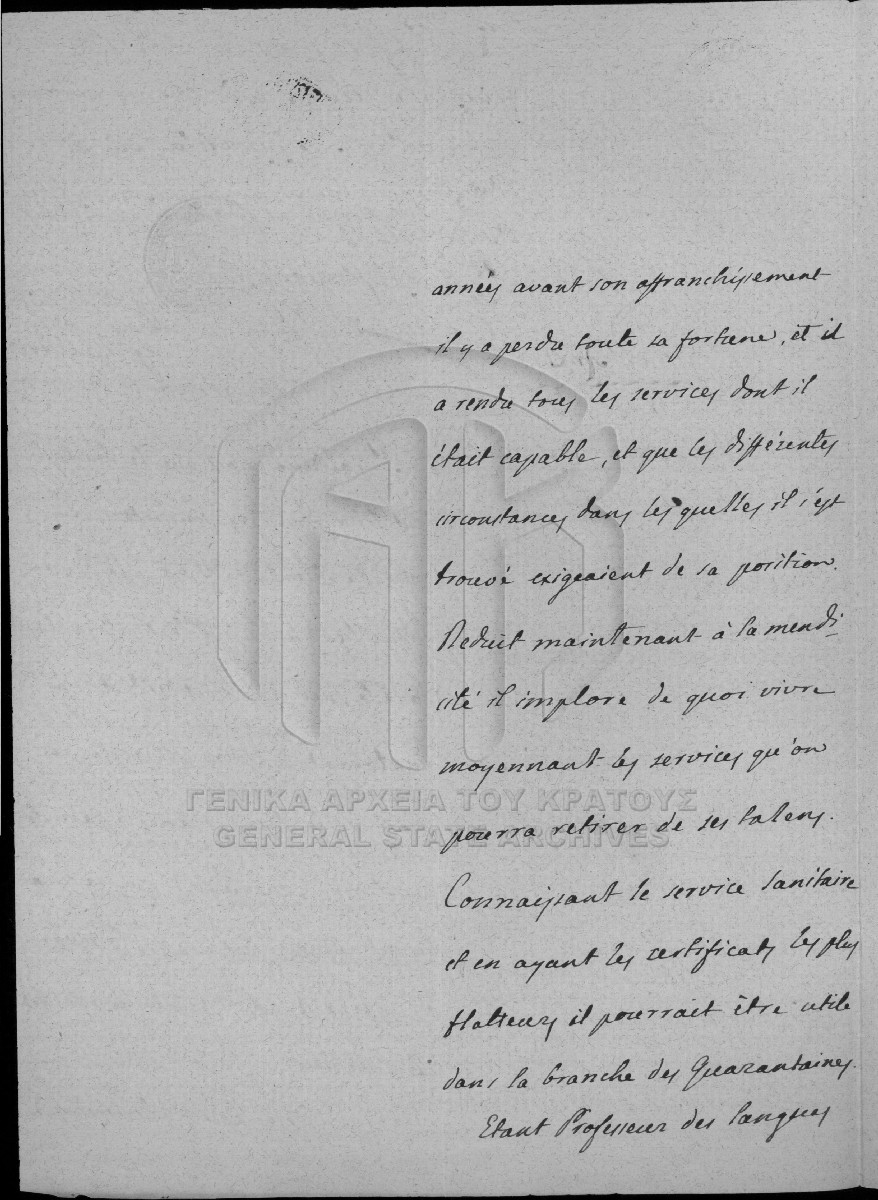 années avant son affranchissement
il y a perdu toute sa fortune, et il
a rendu tous les services dont il
était capable, et que les différentes
circonstances dans les quelles il s'est
trouvé exigeaient de sa position.
Reduit maintenant à la mendi-
cité il implore de quoi vivre
moyennant les services qu'on
ΓΕΝΙΚΑ ΑΡΧΕΙΑ ΤΟΥ ΚΡΑΤΟΥΣ
pourra retirer de ses talens.
GENERAL STATE ARCHIVES
Connaissant le service sanitaire
et en ayant les certificats les plus
flatteurs il pourrait être utile
dans la branche des Quarantaines.
Etant Professeur des langues